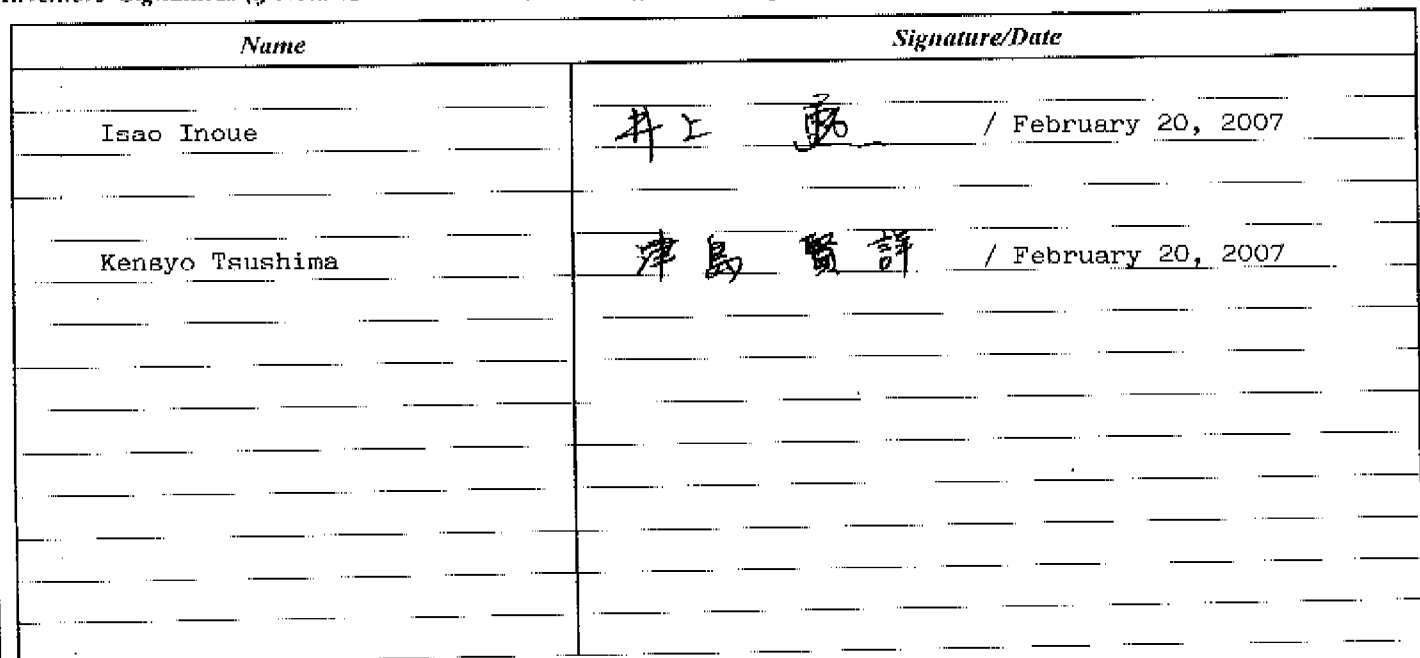 Name Signature/Date
Isao Inoue 井上 勇 / February 20, 2007
Kensyo Tsushima 津島 賢詳 / February 20, 2007